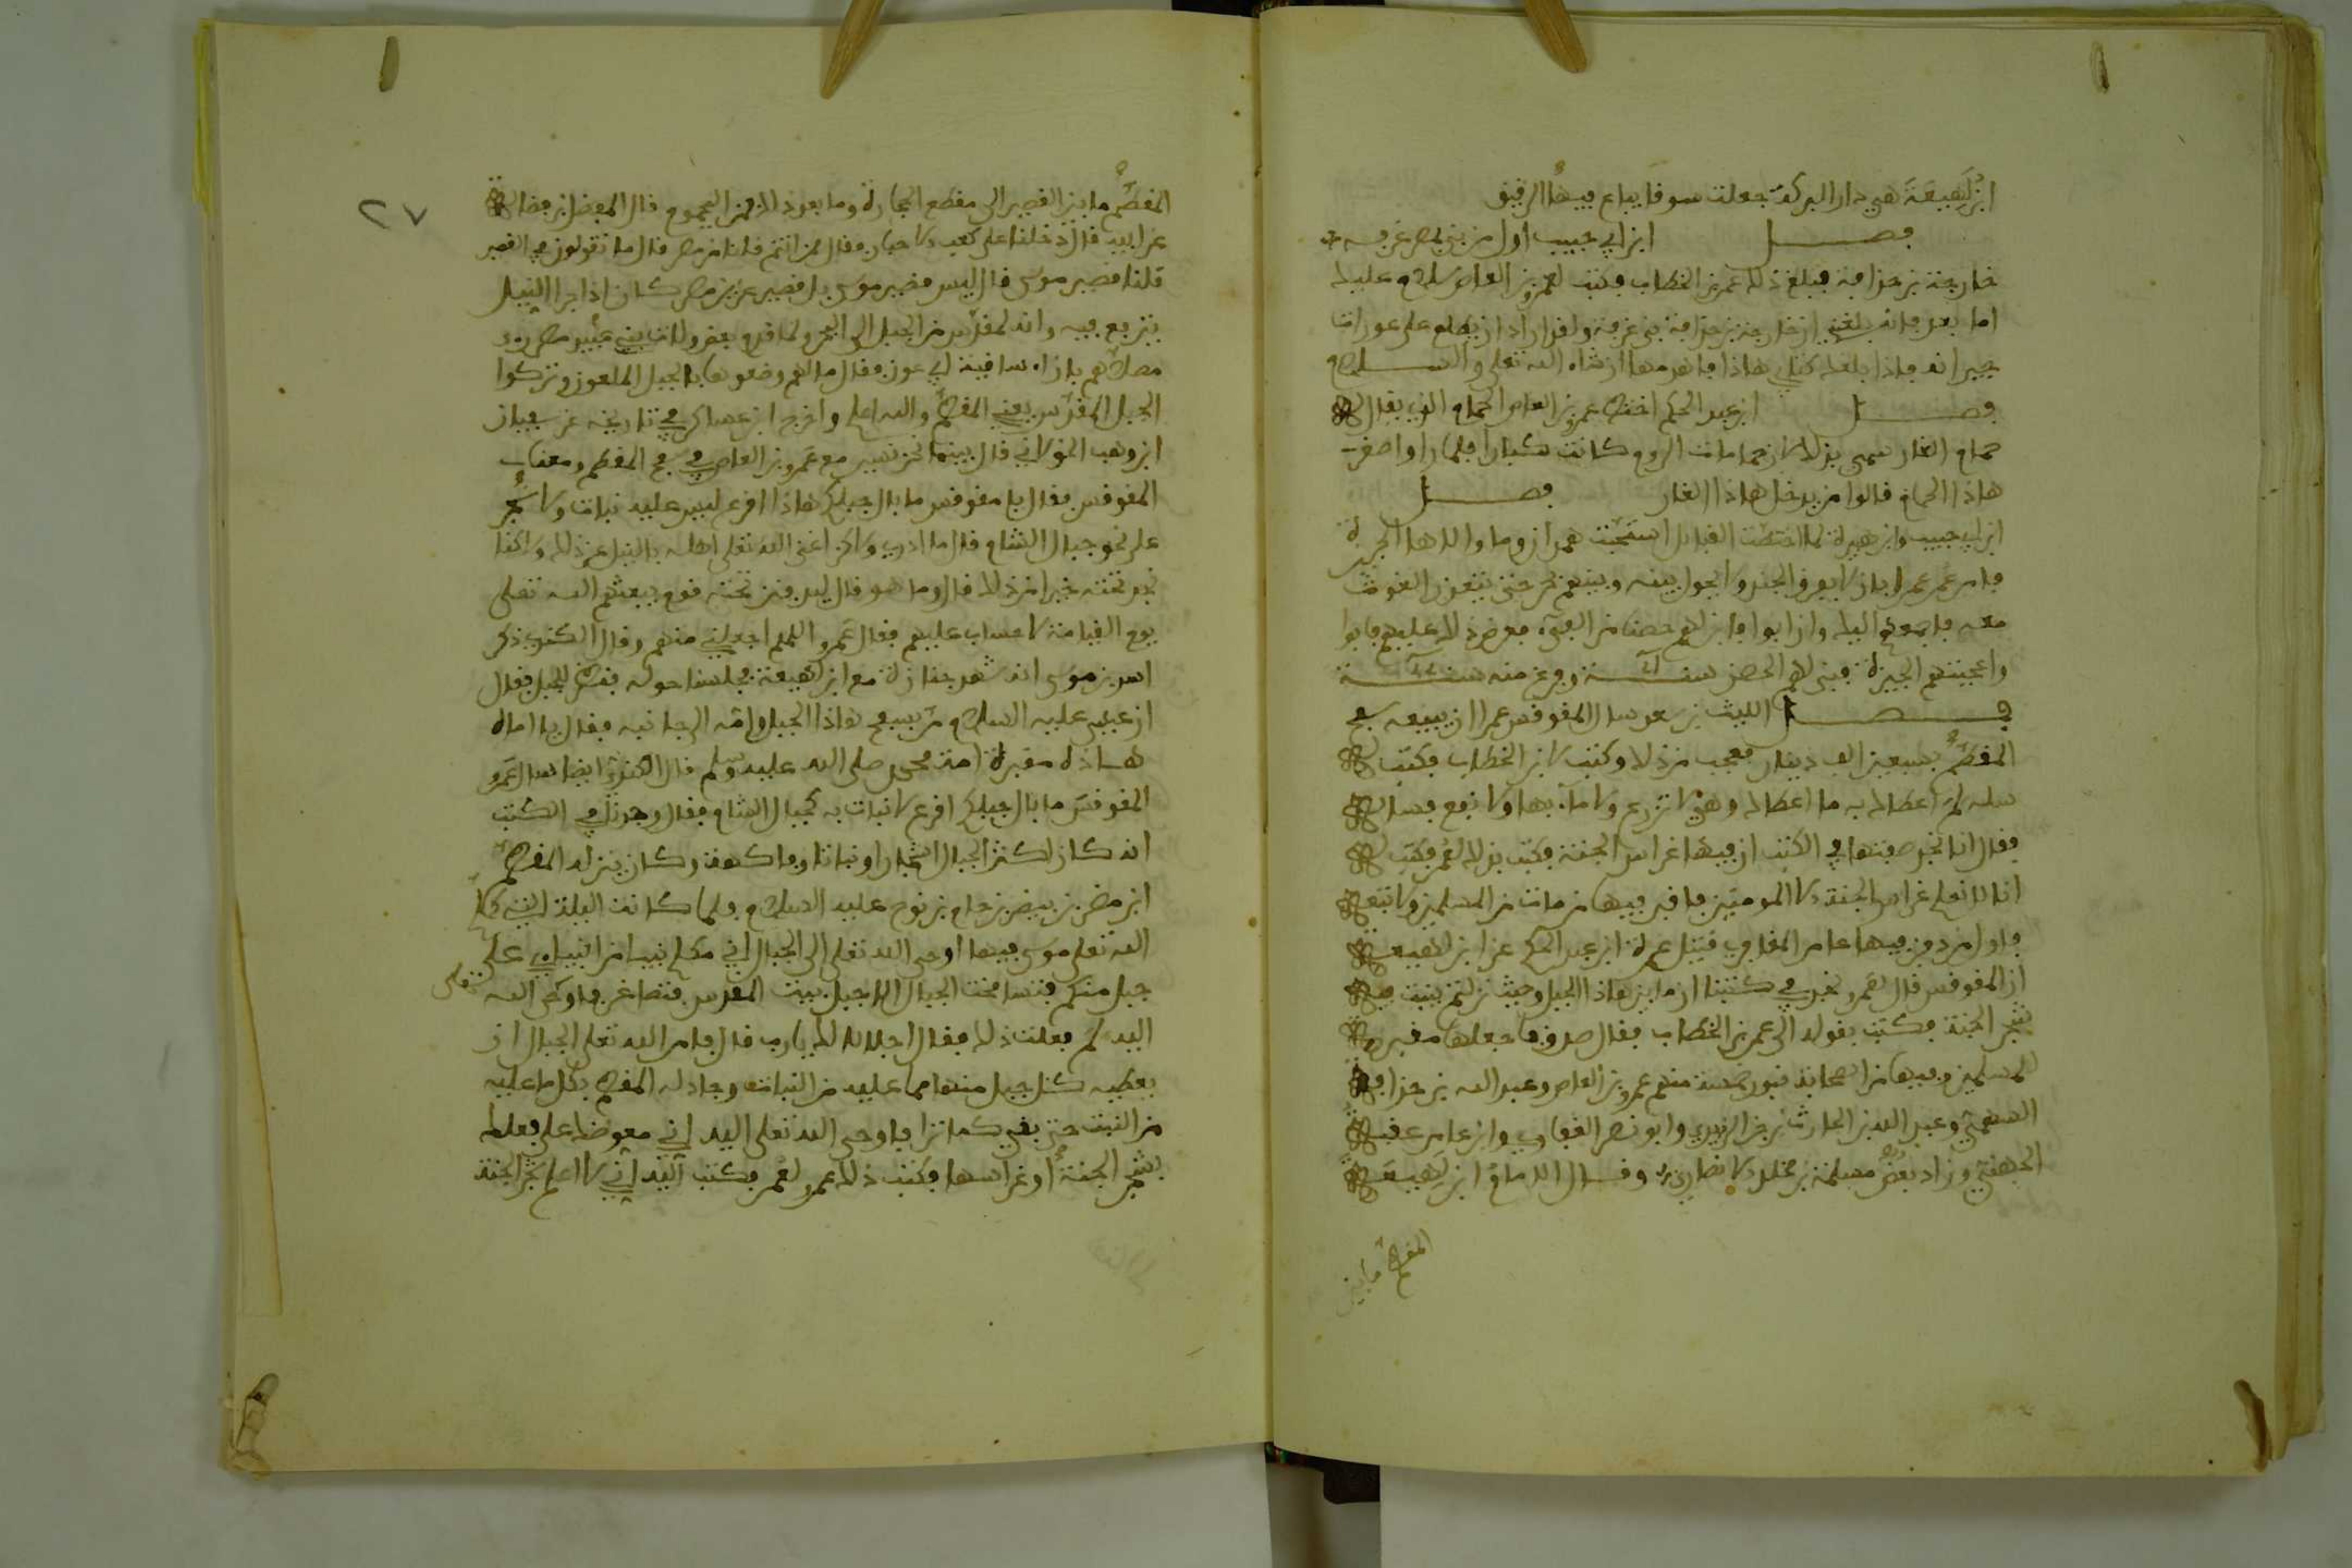 ابن لهيعة هي دار البركة جعلت سوقا يباع فيها الرقيق
فصل ابن ابي حبيب اول من بنى بمصر غرفة
خارجة بن حذافة فبلغ ذلك عمر بن الخطاب فكتب لعمرو بن العاص سلام عليك
اما بعد فانه بلغني ان خارجة بن حذافة بنى غرفة ولقد اراد ان يطلع على عورات
جيرانه فاذا بلغك كتابي هاذا فاهدمها ان شاء الله تعلى والسلام
فصل ابن عبد الحكم اختط عمرو بن العاص الحمام الذي يقال له
حمام الفار سمي بذلك لان حمامات الروم كانت كبارا فلما راوا صغر
هاذا الحمام قالوا من يدخل هاذا الفار فصل
ابن ابي حبيب وابن هبيرة لما اختطت القبائل استحبت همدان وما والاها الجيزة
فامر عمر عمرا بان لا يفرق الجند ولا يحول بينه وبينهم بحر حتى يتعذر الغوث
معه فاجمعهم اليك وان ابوا فابن لهم حصنا من الفيء فعرض ذلك عليهم فابوا
واعجبتهم الجيزة فبنى لهم الحصن سنة ٢١ وفرغ منه سنة ٢٢
فصل الليث بن سعد سال المقوقس عمرا ان يبيعه سفح
المقطم بسبعين الف دينار فعجب من ذلك وكتب لابن الخطاب فكتب له
سله لم اعطاك به ما اعطاك وهي لا تزرع ولا ماء بها ولا نفع فساله
فقال انا نجد صفتها في الكتب ان فيها غراس الجنة فكتب بذلك لعمر فكتب له
انا لا نعلم غراس الجنة الا المومنين فاقبر فيها من مات من المسلمين ولا تبعه
فاول من دفن فيها عامر المغافري قتيل عمرة ابن عبد الحكم عن ابن لهيعة
ان المقوقس قال لعمرو نجد في كتبنا ان ما بين هاذا الجبل وحيث نزلتم ينبت فيه
شجر الجنة فكتب بقوله الى عمر بن الخطاب فقال صدق فاجعلها مقبرة
للمسلمين وفيها من الصحابة قبور خمسة منهم عمرو بن العاص وعبد الله بن حذافة
السهمي وعبد الله بن الحارث بن جزء الزبيدي وابو نصر الغفاري وابن عامر عقبة
الجهني وزاد بعض مسلمة بن مخلد الانصاري وقال الامام ابن لهيعة
المقطم ما بين
٢٧
المقطم ما بين القصير الى مقطع الحجارة وما بعد ذلك فمن اليحموم قال المفضل بن فضالة
عن ابيه قال دخلنا على كعب الاحبار فقال ممن انتم قلنا من مصر قال ما تقولون في القصير
قلنا قصير موسى قال ليس قصير موسى بل قصير عزيز مصر كان اذا جرا النيل
يترفع فيه وانه لمقدس من الجبل الى البحر
الجبل المقدس يعني المقطم والله اعلم واخرج ابن عساكر في تاريخه عن سفيان
ابن وهب الخولاني قال بينما نحن نسير مع عمرو بن العاص في سفح المقطم ومعنا
المقوقس فقال يا مقوقس ما بال جبلكم هاذا اقرع ليس عليه نبات ولا شجر
على نحو جبال الشام قال ما ادري ولكن اغنى الله تعلى اهله بالنيل عن ذلك ولكنا
نجد تحته خيرا من ذلك قال وما هو قال ليدفنن تحته قوم يبعثهم الله تعلى
يوم القيامة لا حساب عليهم فقال عمرو اللهم اجعلني منهم وقال الكندي ذكر
اسد بن موسى انه شهد جنازة مع ابن لهيعة فجلسنا حوله فنظر للجبل فقال
ان عيسى عليه السلام مر بسفح هاذا الجبل وامه الى جانبه فقال يا اماه
هاذه مقبرة امة محمد صلى الله عليه وسلم قال الكندي ايضا سال عمرو
المقوقس ما بال جبلكم اقرع لا نبات به كجبال الشام فقال وجدنا في الكتب
انه كان اكثر الجبال اشجارا ونباتا وفاكهة وكان ينزله المقطم
ابن مصر بن بيصر بن حام بن نوح عليه السلام فلما كانت الليلة التي كلم
الله تعلى موسى فيها اوحى الله تعلى الى الجبال اني مكلم نبيا من انبيائي على
جبل منكم فتسامخت الجبال الا جبل بيت المقدس فتصاغر فاوحى الله تعلى
اليه لم فعلت ذلك فقال اجلالا لك يا رب قال فامر الله تعلى الجبال ان
يعطيه كل جبل منها مما عليه من النبات وجاد له المقطم بكل ما عليه
من النبت حتى بقي كما ترا فاوحى الله تعلى اليه اني معوضك على فعلك
بشجر الجنة او غراسها فكتب ذلك عمرو لعمر فكتب اليه اني لا اعلم شجر الجنة